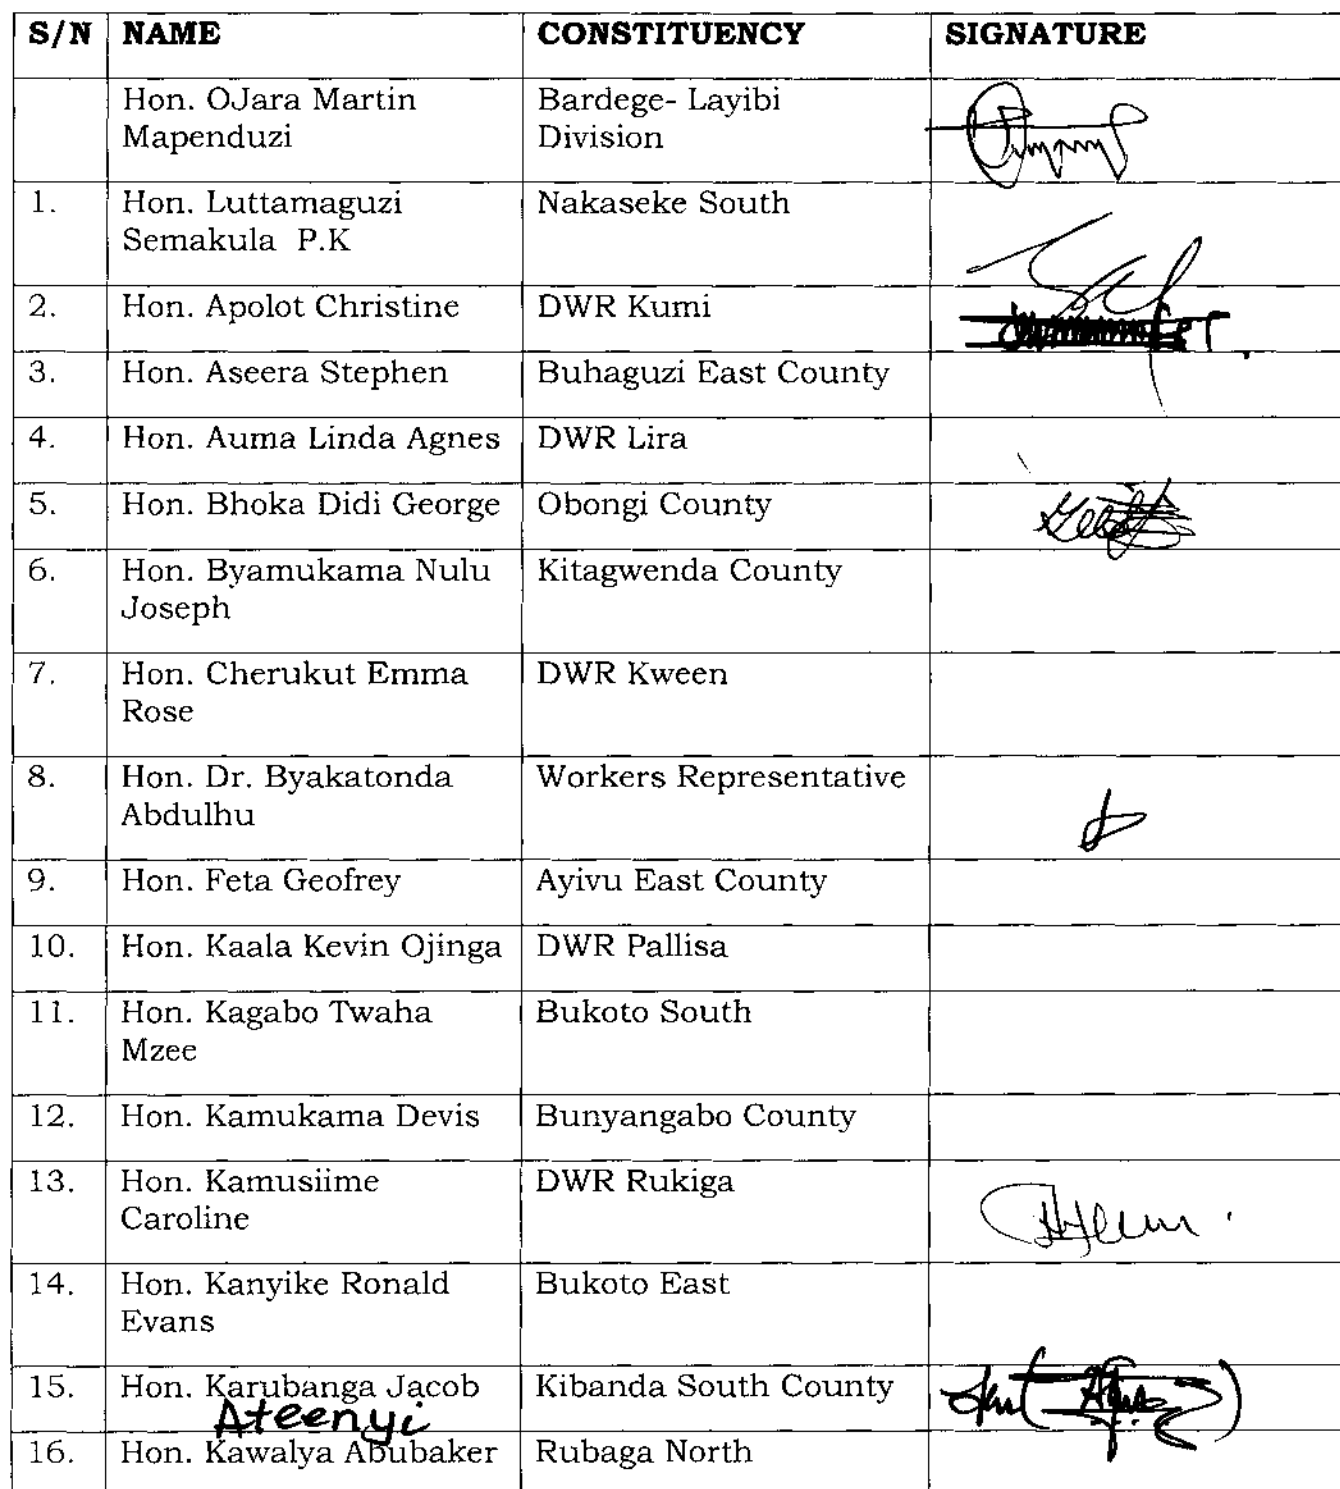 S/N NAME CONSTITUENCY SIGNATURE
Hon. OJara Martin Bardege- Layibi
Mapenduzi Division
1. Hon. Luttamaguzi Nakaseke South
Semakula P.K
2. Hon. Apolot Christine DWR Kumi
3. Hon. Aseera Stephen Buhaguzi East County
4. Hon. Auma Linda Agnes DWR Lira
5. Hon. Bhoka Didi George Obongi County
6. Hon. Byamukama Nulu Kitagwenda County
Joseph
7. Hon. Cherukut Emma DWR Kween
Rose
8. Hon. Dr. Byakatonda Workers Representative
Abdulhu
9. Hon. Feta Geofrey Ayivu East County
10. Hon. Kaala Kevin Ojinga DWR Pallisa
11. Hon. Kagabo Twaha Bukoto South
Mzee
12. Hon. Kamukama Devis Bunyangabo County
13. Hon. Kamusiime DWR Rukiga
Caroline
14. Hon. Kanyike Ronald Bukoto East
Evans
15. Hon. Karubanga Jacob Kibanda South County
Ateenyi
16. Hon. Kawalya Abubaker Rubaga North